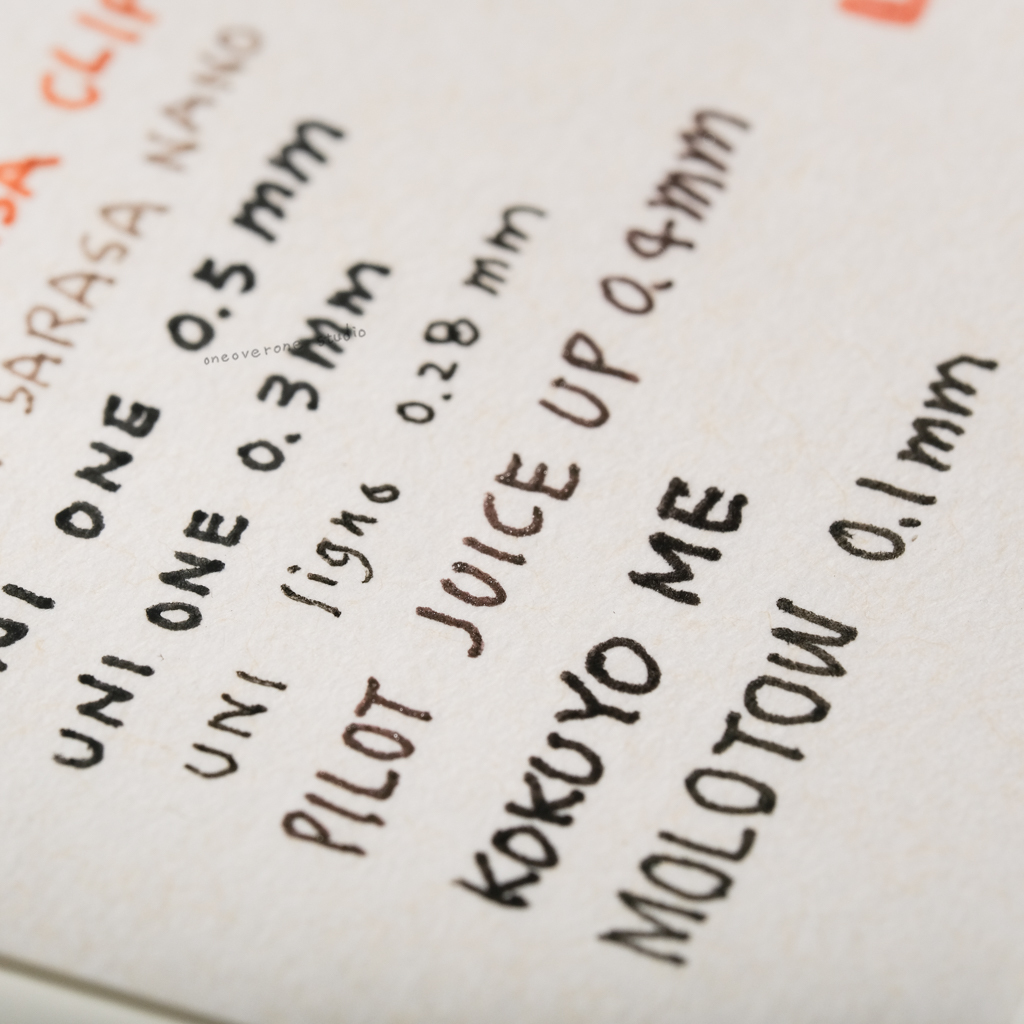 SA CLIP
SARASA NANO
UNI ONE 0.5 mm
UNI ONE 0.3 mm
UNI signo 0.28 mm
PILOT JUICE UP 0.4mm
KOKUYO ME
MOLOTOW 0.1mm
oneoverone studio